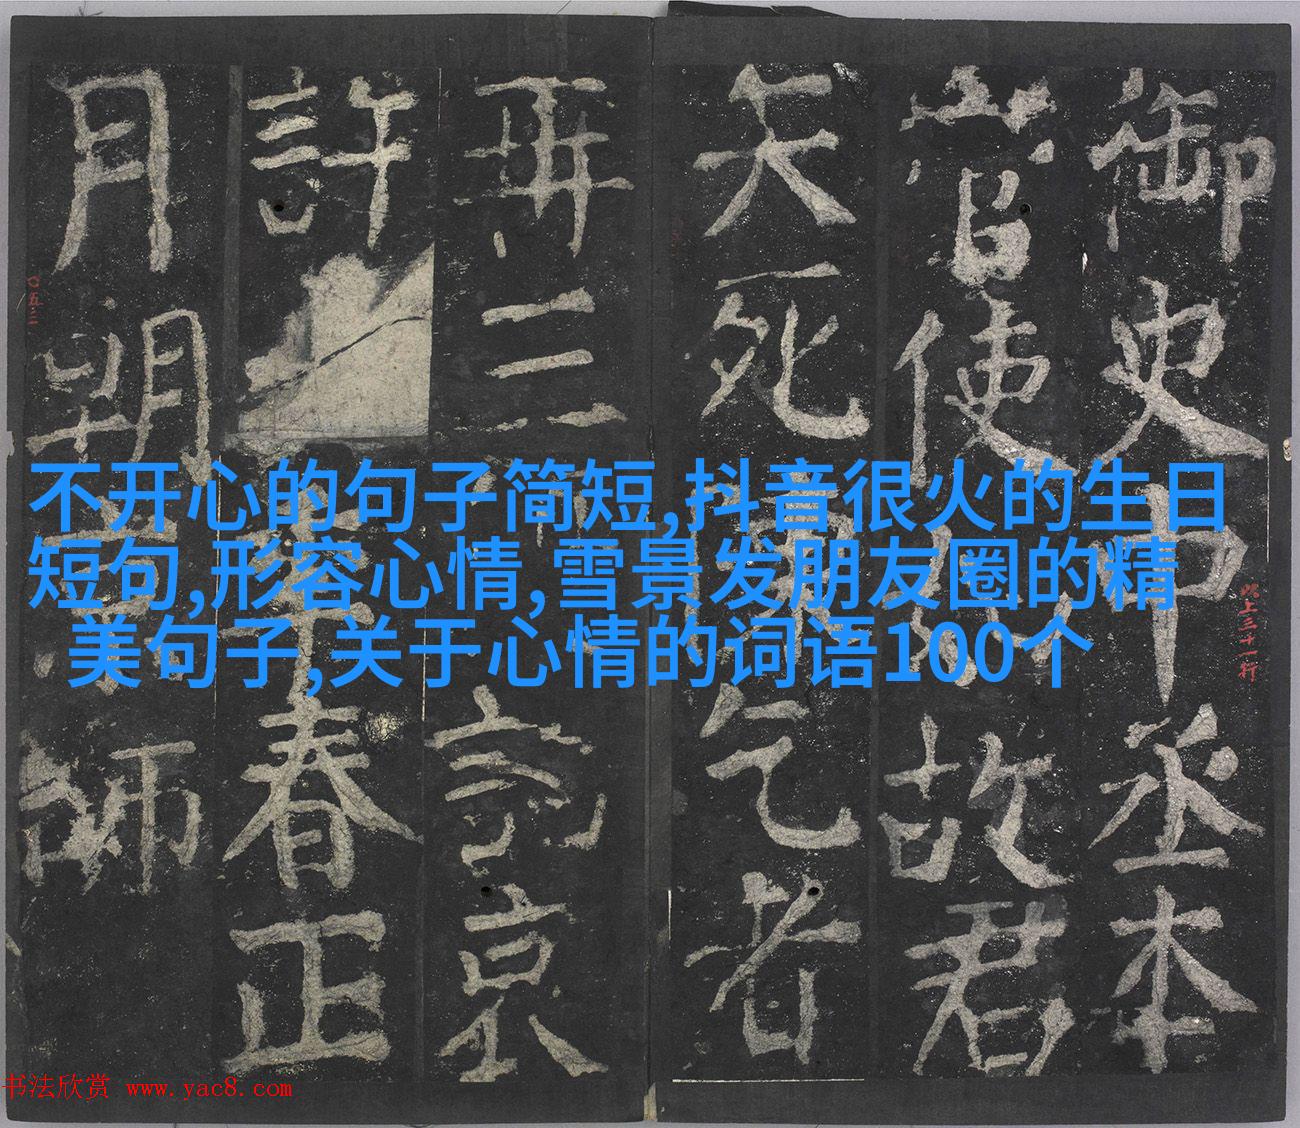 御史中丞本
當使
故君
矢死
乞者
再三
京
許
年春正
月朔
師
以上三十一行
〇五三
不开心的句子简短,抖音很火的生日
短句,形容心情,雪景发朋友圈的精
美句子,关于心情的词语100个
书法欣赏 www.yac8.com